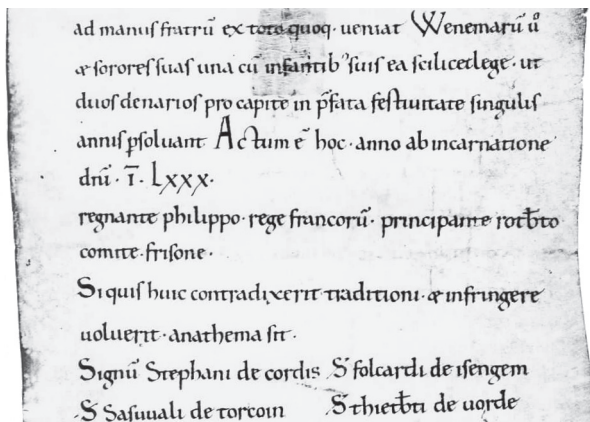 ad manus fratrū ex toto quoq· ueniat Wenemarū ů
& sorores suas una cū infantib' suis ea scilicet lege· ut
duos denarios pro capite in p̄fata festiuitate singulis
annis ꝑsoluant Actum ē hoc· anno ab incarnatione
dn̄i· ī· Lxxx·
regnante philippo· rege francorū· principante rotb̄to
comite· frisone·
Si quis huic contradixerit traditioni· & infringere
uoluerit· anathema sit·
Signū Stephani de cordis S̄ folcardi de isengem
S̄ Sasuuali de torcoin S̄ thietb̄ti de uorde